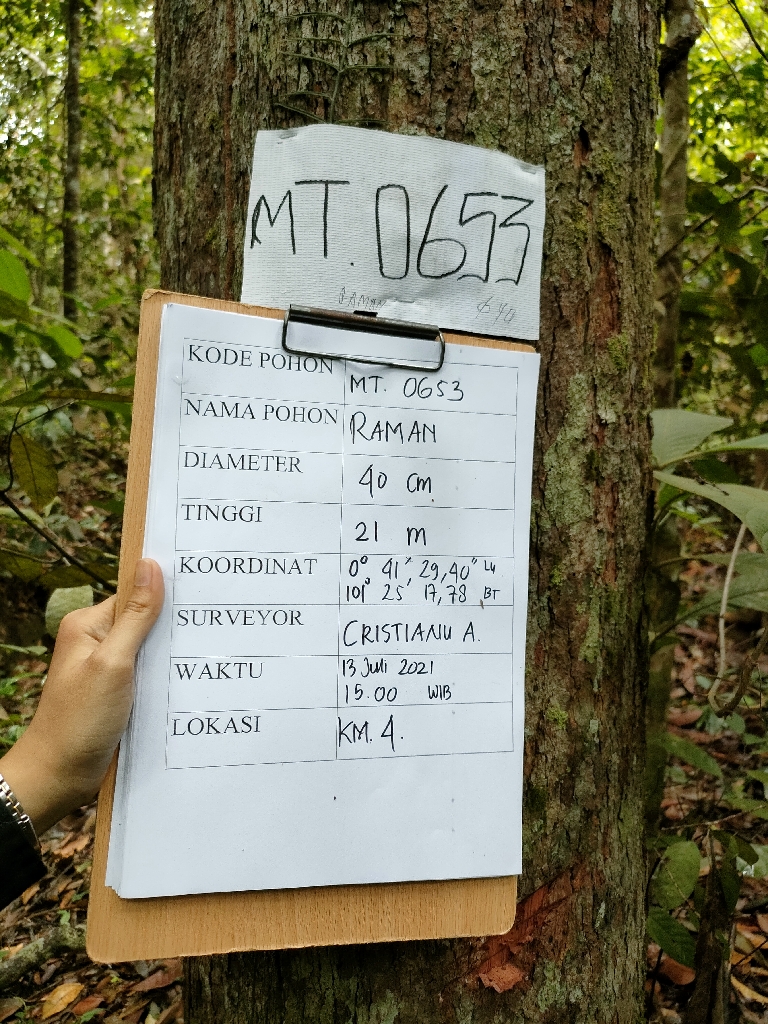 MT. 0653
RAMAN 640
KODE POHON MT. 0653
NAMA POHON RAMAN
DIAMETER 40 cm
TINGGI 21 m
KOORDINAT 0° 41' 29,40" LU
101° 25' 17,78 BT
SURVEYOR CRISTIANU A.
WAKTU 13 Juli 2021
15.00 WIB
LOKASI KM. 4.